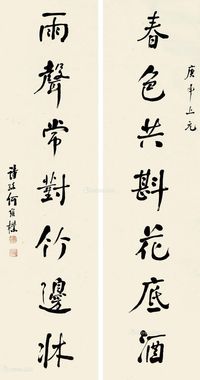 庚午上元
春色共斟花底酒
雨聲常對竹邊牀
何維樸